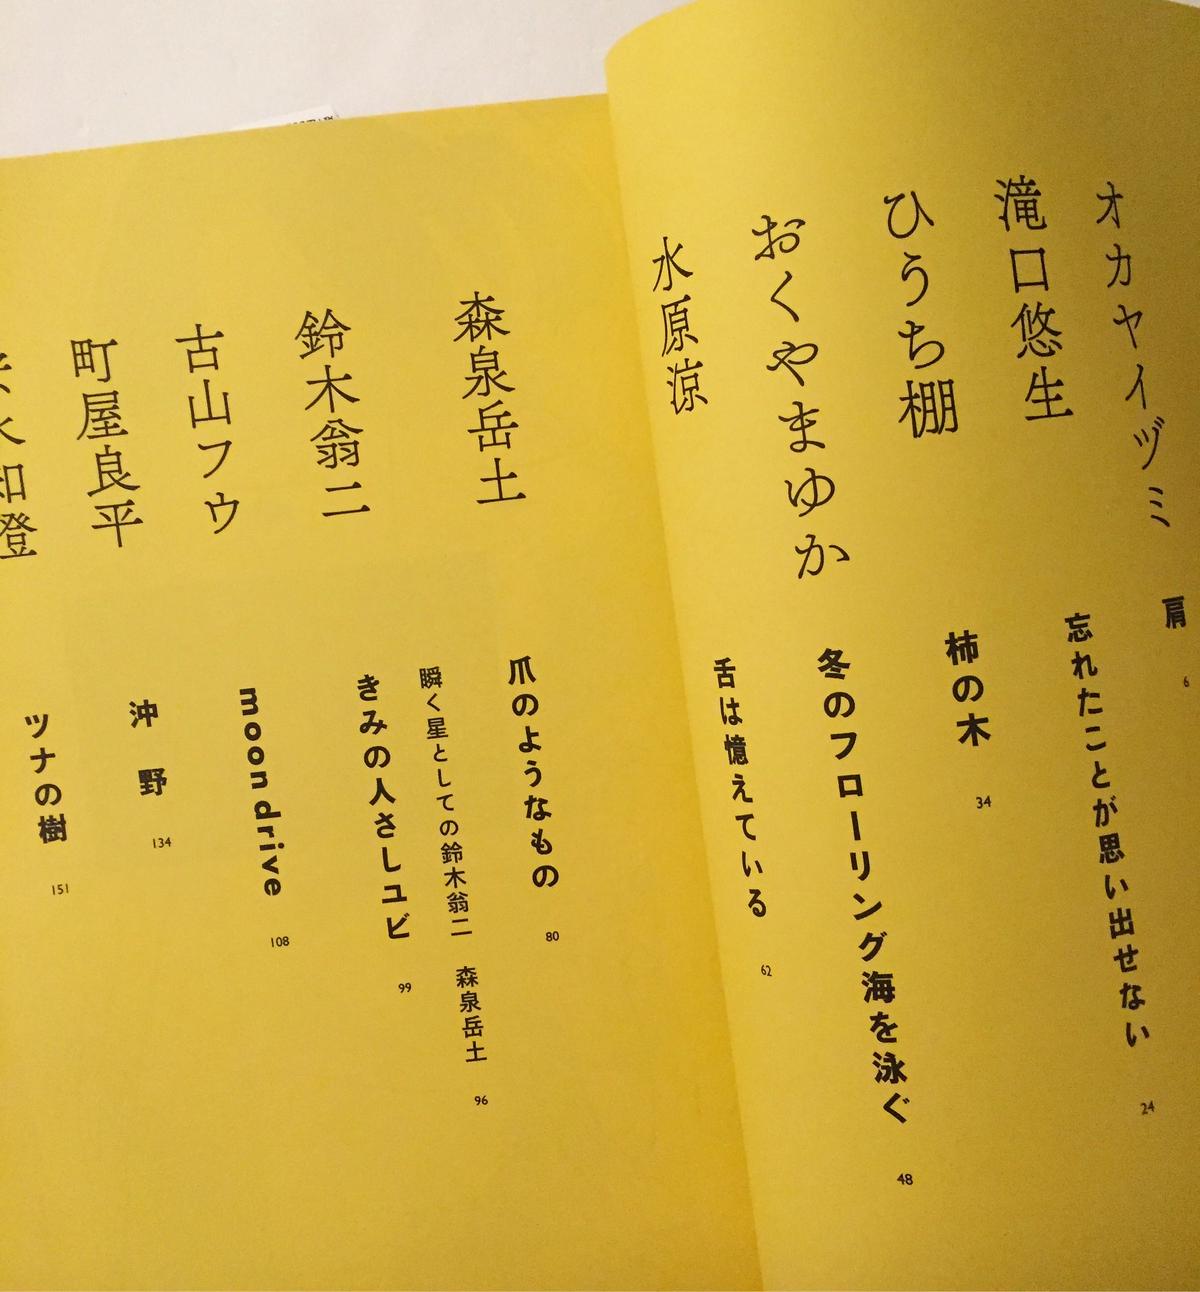 オカヤイヅミ
肩
6
滝口悠生
忘れたことが思い出せない
24
ひうち棚
柿の木
34
おくやまゆか
冬のフローリング海を泳ぐ
48
水原涼
舌は憶えている
62
森泉岳土
爪のようなもの
80
瞬く星としての鈴木翁二 森泉岳土
96
鈴木翁二
きみの人さしユビ
99
古山フウ
moon drive
108
町屋良平
沖野
134
水知澄
ツナの樹
151